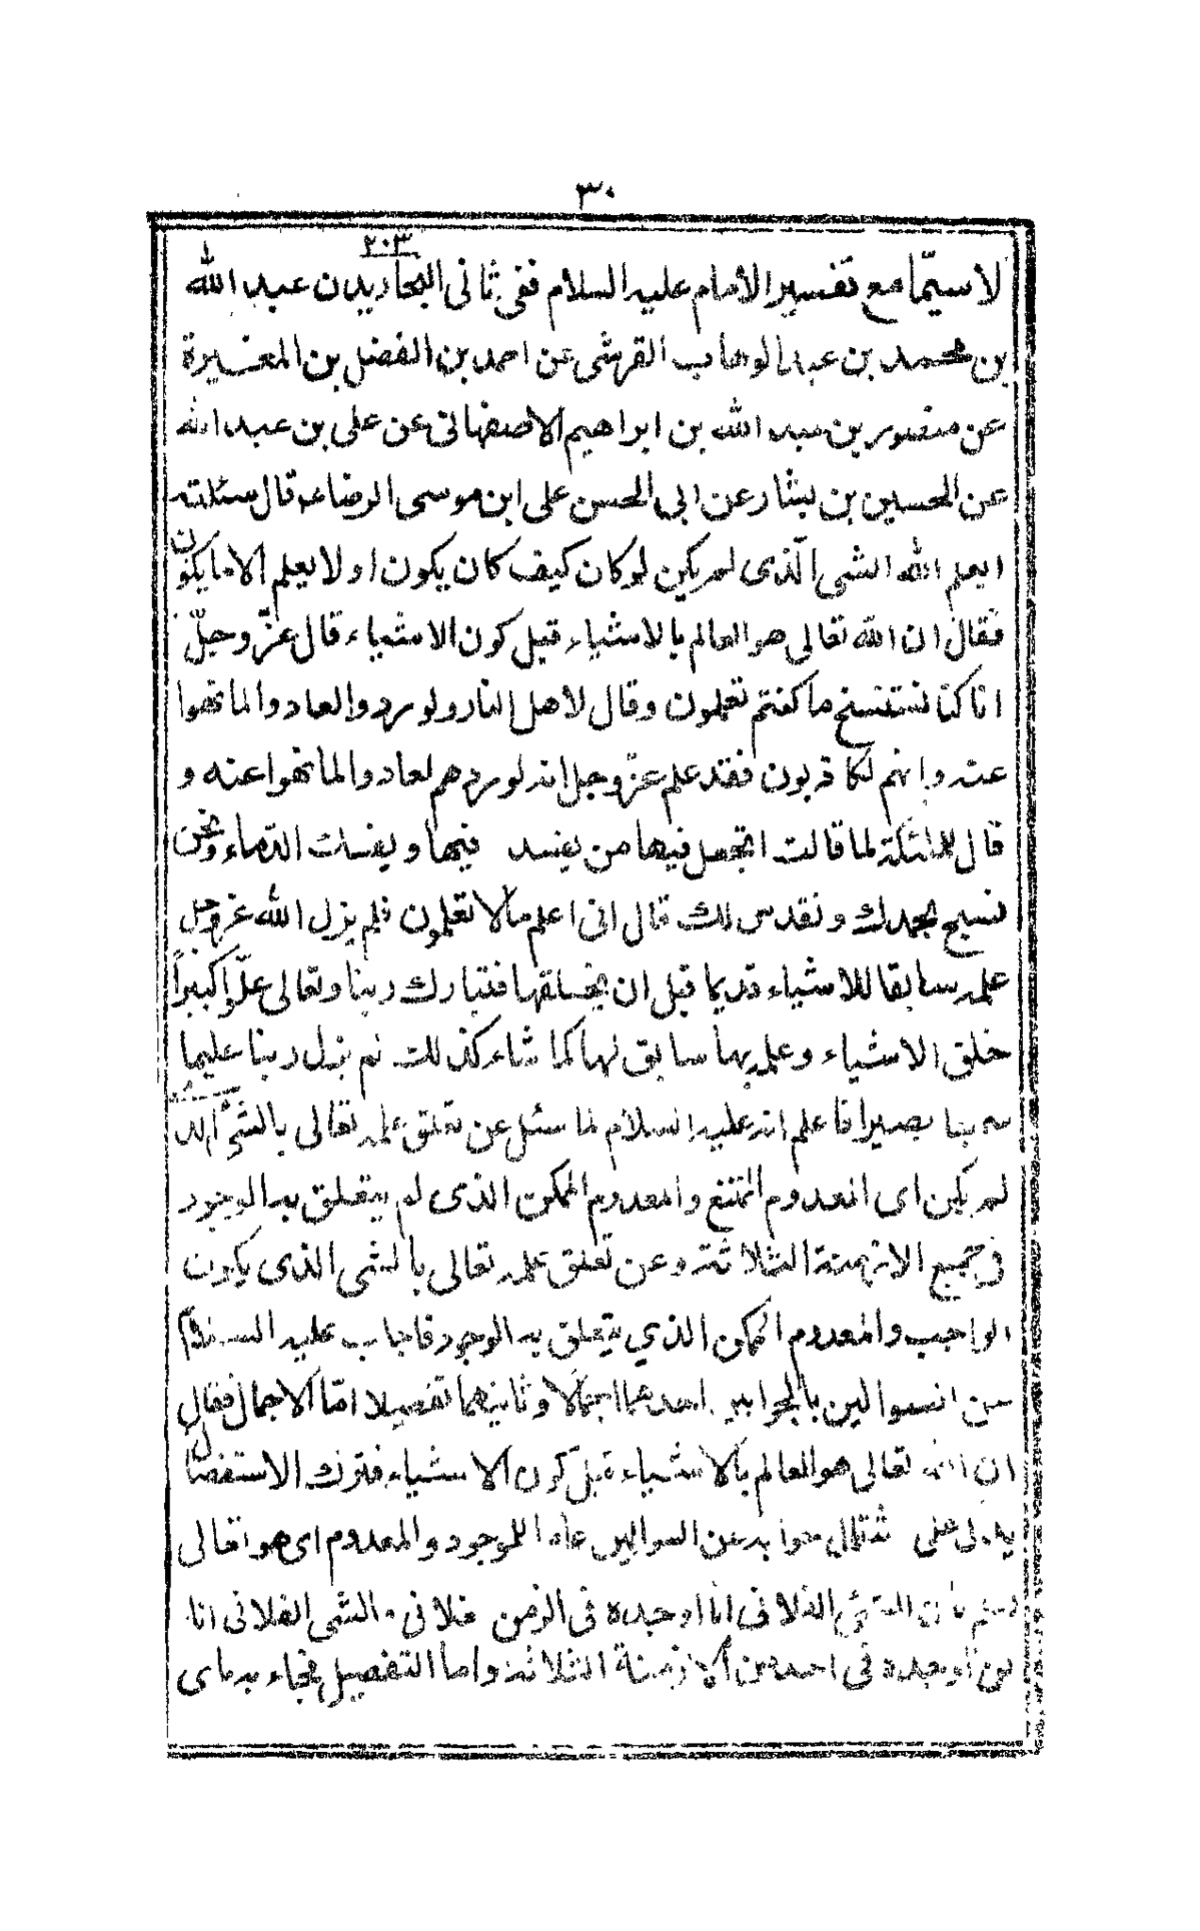 ٣٠
٢٠٣
لاسيّما مع تفسير الامام عليه السلام ففى ثانى البحار يدن عبد الله
بن محمد بن عبد الوهاب القرشى عن احمد بن الفضل بن المغيرة
عن منصور بن عبد الله بن ابراهيم الاصفهانى عن على بن عبد الله
عن الحسين بن بشار عن ابى الحسن على ابن موسى الرضاع قال سئلته
ايعلم الله الشى الّذى لم يكن لو كان كيف كان يكون او لا يعلم الا ما يكون
فقال ان الله تعالى هو العالم بالاشياء قبل كون الاشياء قال عزّ وجلّ
انا كنا نستنسخ ما كنتم تعملون وقال لاهل النار ولو ردوا لعادوا لما نهوا
عنه وانهم لكاذبون فقد علم عزّ وجل انه لو ردهم لعادوا لما نهوا عنه و
قال للملئكة لما قالت اتجعل فيها من يفسد فيها ويفسك الدّماء ونحن
نسبح بحمدك ونقدس لك قال انى اعلم ما لا تعلمون فلم يزل الله عز وجل
علمه سابقا للاشياء قديما قبل ان يخلقها فتبارك ربنا وتعالى علّوا كبيراً
خلق الاشياء وعلمه بها سابق لها كما شاء كذلك لم يزل ربنا عليما
سميعا بصيرا فاعلم انه عليه السلام لما سئل عن تعلق علمه تعالى بالشئ الذ
لم يكن اى المعدوم الممتنع والمعدوم الممكن الذى لم يتعلق به الوجود
فى جميع الازمنة الثلاثة وعن تعلق علمه تعالى بالشى الذى يكون
الواجب والمعدوم الممكن الذي يتعلق به الوجود فاجاب عليه السلام
عن السوالين بالجوابين احدهما اجمالا وثانيهما تفصيلا امّا الاجمال فقال
ان الله تعالى هو العالم بالاشياء قبل كون الاشياء فترك الاستفصال
يدل على شتمال جوابه عن السوالين علمه الموجود والمعدوم اى هو تعالى
يعلم بان الشئ الفلانى انا اوجده فى الزمن فلانى والشى الفلانى انا
لن اوجده فى احد من الازمنة الثلاثة واما التفصيل فجاء به باى